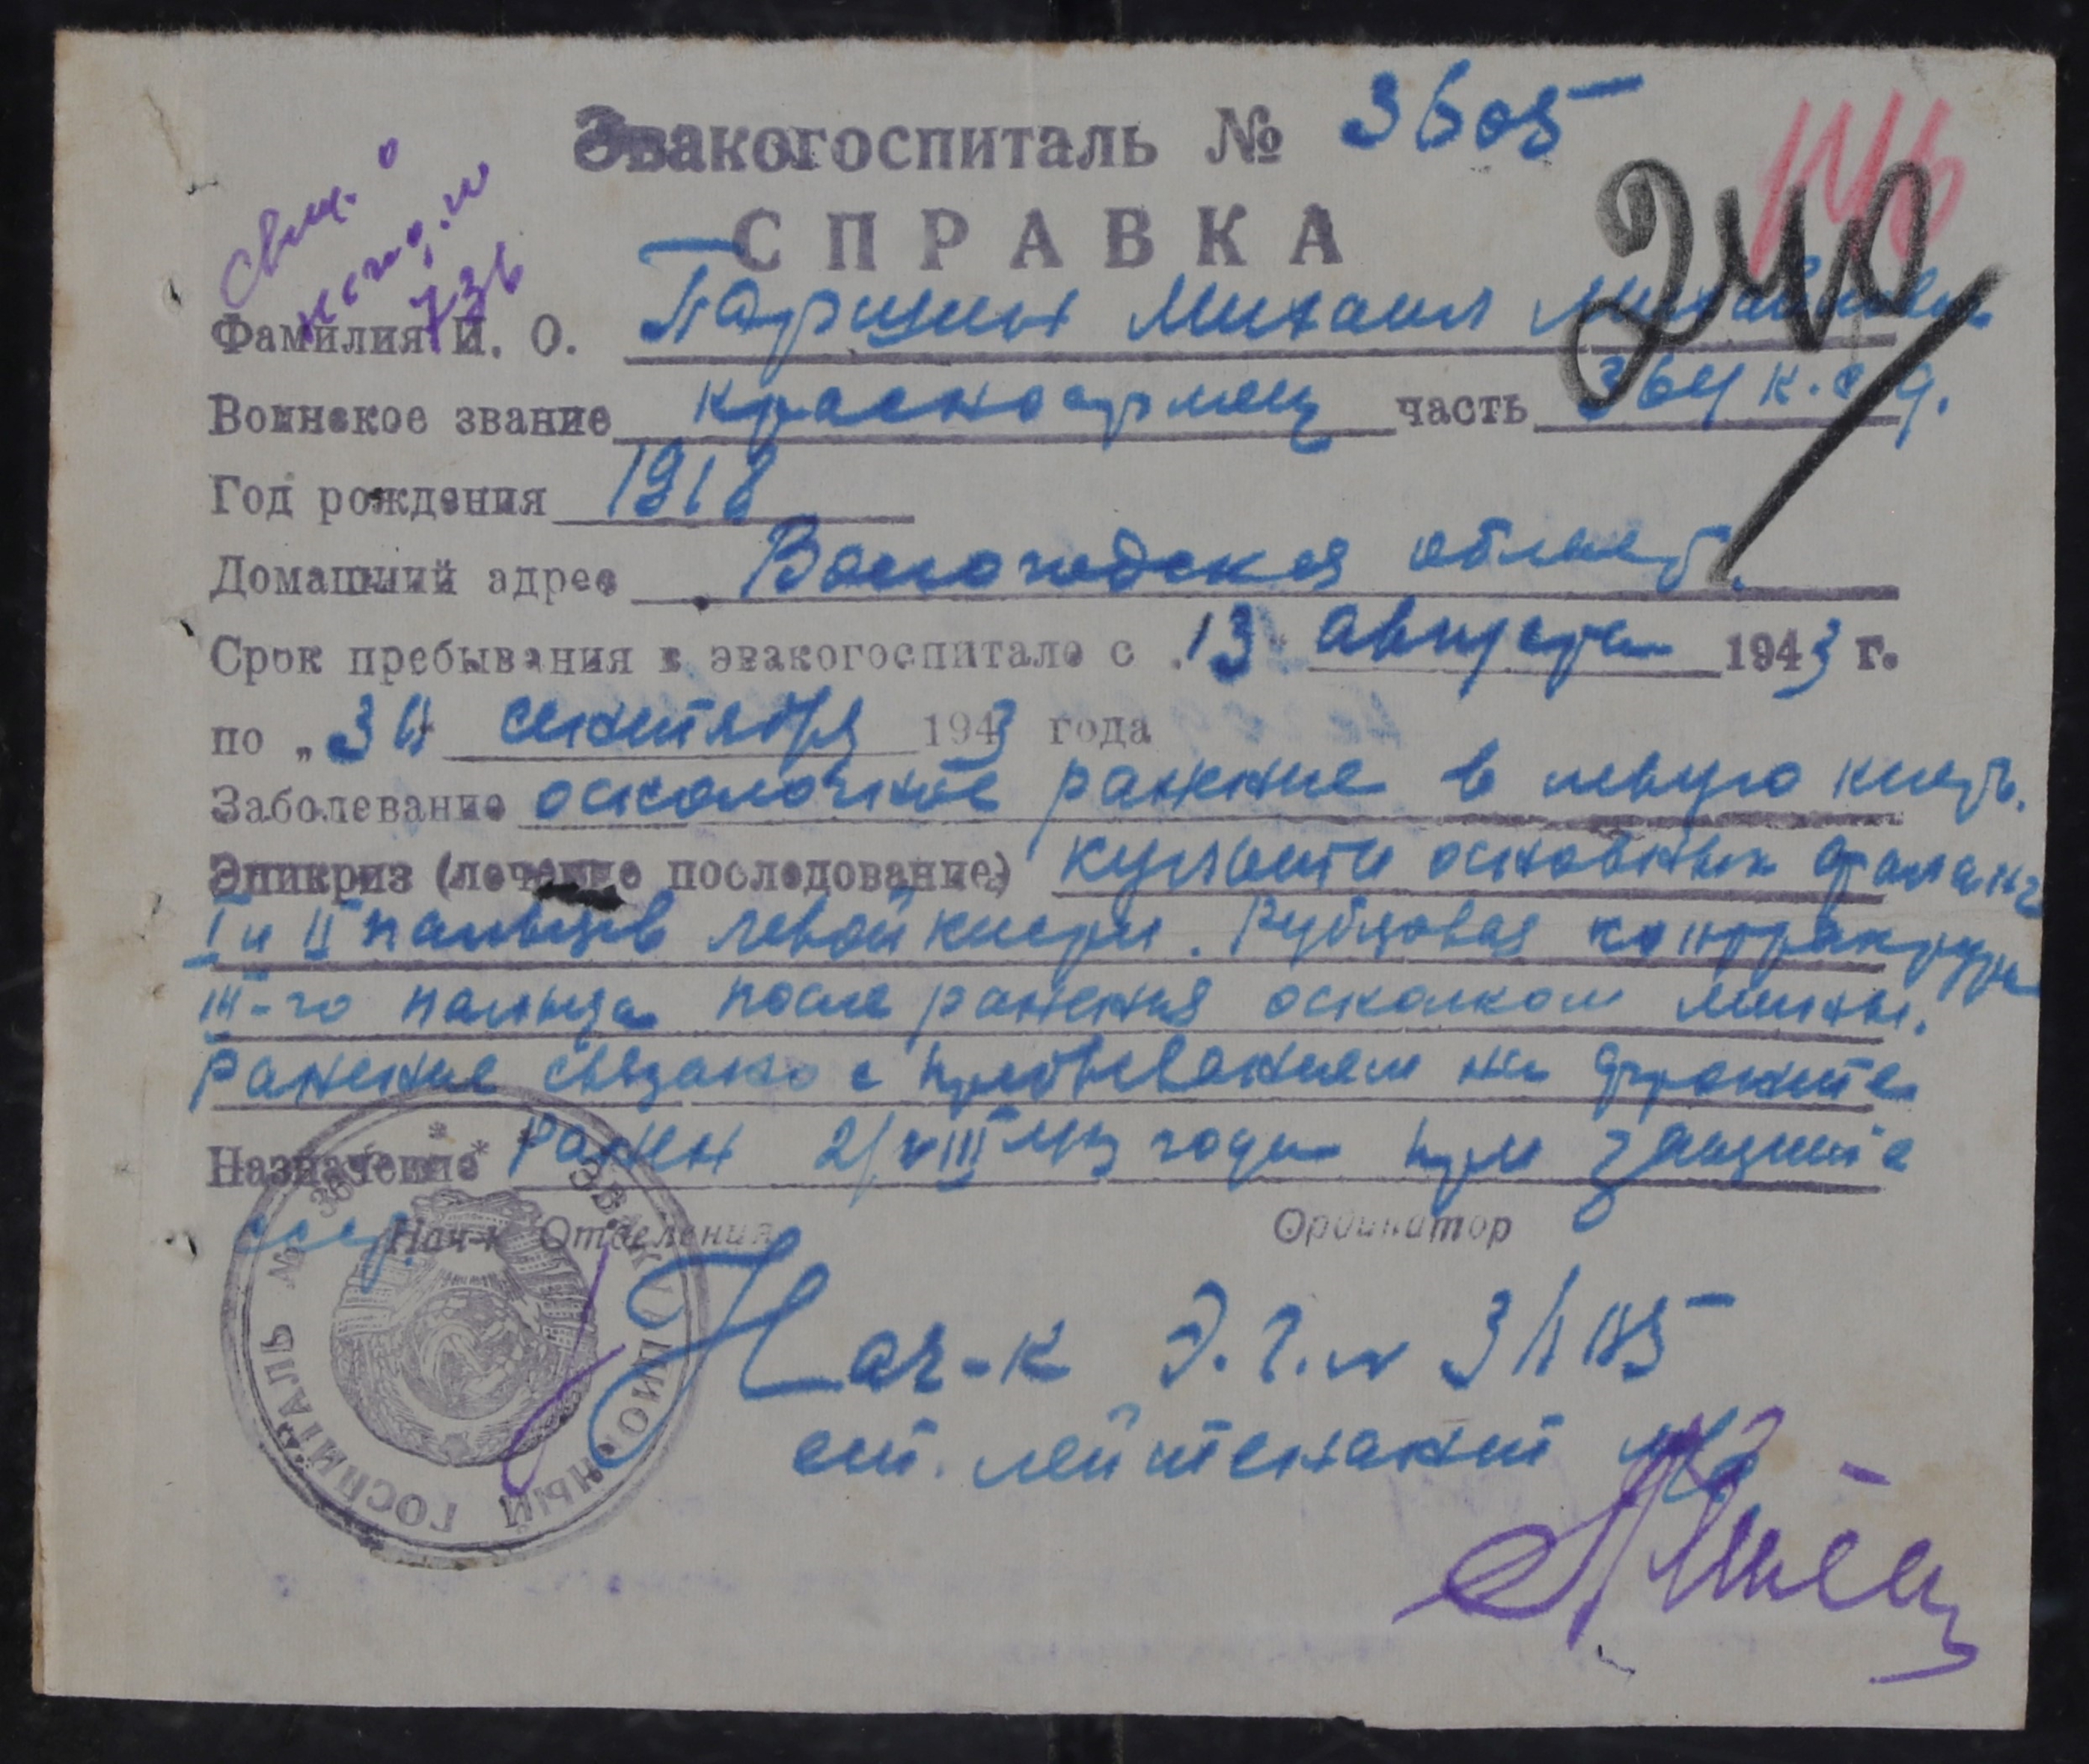 146
240
Эвакогоспиталь № 3605
СПРАВКА
736
Фамилия И. О. Паршин Михаил Михайлович
Воинское звание красноармеец часть 364 к.с.д.
Год рождения 1918
Домашний адрес Вологодская област.
Срок пребывания в эвакогоспитале с 13 августа 1943 г.
по „ 30 сентября 1943 года
Заболевание осколочное ранение в левую кисть.
Эпикриз (лечение последование) Культи основных фаланг
I и II пальцев левой кисти. Рубцовая контрактура
III-го пальца после ранения осколком мины.
Ранение связано с пребыванием на фронте
Назначение Ранен 2/VIII 43 года при защите
ссср.
Нач-к Отделения Ординатор
Нач-к Э.Г. № 3605
ст. лейтенант м/с
ЭВАКУАЦИОННЫЙ ГОСПИТАЛЬ №